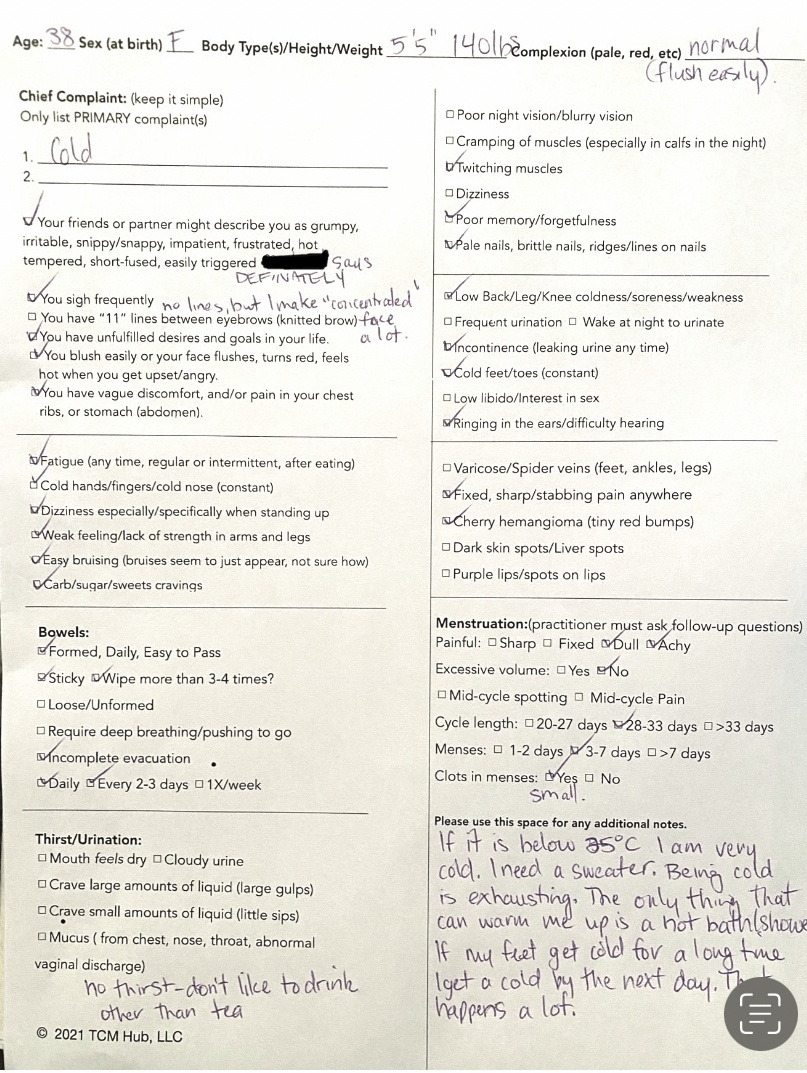 Age: 38 Sex (at birth) F Body Type(s)/Height/Weight 5'5" 140lbs Complexion (pale, red, etc) normal
(flush easily).
Chief Complaint: (keep it simple)
Only list PRIMARY complaint(s)
1. Cold
2.
Your friends or partner might describe you as grumpy,
irritable, snippy/snappy, impatient, frustrated, hot
tempered, short-fused, easily triggered says
DEFINATELY
You sigh frequently no lines, but I make "concentrated"
You have "11" lines between eyebrows (knitted brow) face
You have unfulfilled desires and goals in your life. a lot.
You blush easily or your face flushes, turns red, feels
hot when you get upset/angry.
You have vague discomfort, and/or pain in your chest
ribs, or stomach (abdomen).
Fatigue (any time, regular or intermittent, after eating)
Cold hands/fingers/cold nose (constant)
Dizziness especially/specifically when standing up
Weak feeling/lack of strength in arms and legs
Easy bruising (bruises seem to just appear, not sure how)
Carb/sugar/sweets cravings
Bowels:
Formed, Daily, Easy to Pass
Sticky Wipe more than 3-4 times?
Loose/Unformed
Require deep breathing/pushing to go
Incomplete evacuation
Daily Every 2-3 days 1X/week
Thirst/Urination:
Mouth feels dry Cloudy urine
Crave large amounts of liquid (large gulps)
Crave small amounts of liquid (little sips)
Mucus ( from chest, nose, throat, abnormal
vaginal discharge)
no thirst - don't like to drink
other than tea
© 2021 TCM Hub, LLC
Poor night vision/blurry vision
Cramping of muscles (especially in calfs in the night)
Twitching muscles
Dizziness
Poor memory/forgetfulness
Pale nails, brittle nails, ridges/lines on nails
Low Back/Leg/Knee coldness/soreness/weakness
Frequent urination Wake at night to urinate
Incontinence (leaking urine any time)
Cold feet/toes (constant)
Low libido/Interest in sex
Ringing in the ears/difficulty hearing
Varicose/Spider veins (feet, ankles, legs)
Fixed, sharp/stabbing pain anywhere
Cherry hemangioma (tiny red bumps)
Dark skin spots/Liver spots
Purple lips/spots on lips
Menstruation:(practitioner must ask follow-up questions)
Painful: Sharp Fixed Dull Achy
Excessive volume: Yes No
Mid-cycle spotting Mid-cycle Pain
Cycle length: 20-27 days 28-33 days >33 days
Menses: 1-2 days 3-7 days >7 days
Clots in menses: Yes No
small.
Please use this space for any additional notes.
If it is below 25°C I am very
cold. I need a sweater. Being cold
is exhausting. The only thing that
can warm me up is a hot bath/showe
If my feet get cold for a long time
I get a cold by the next day.
happens a lot.